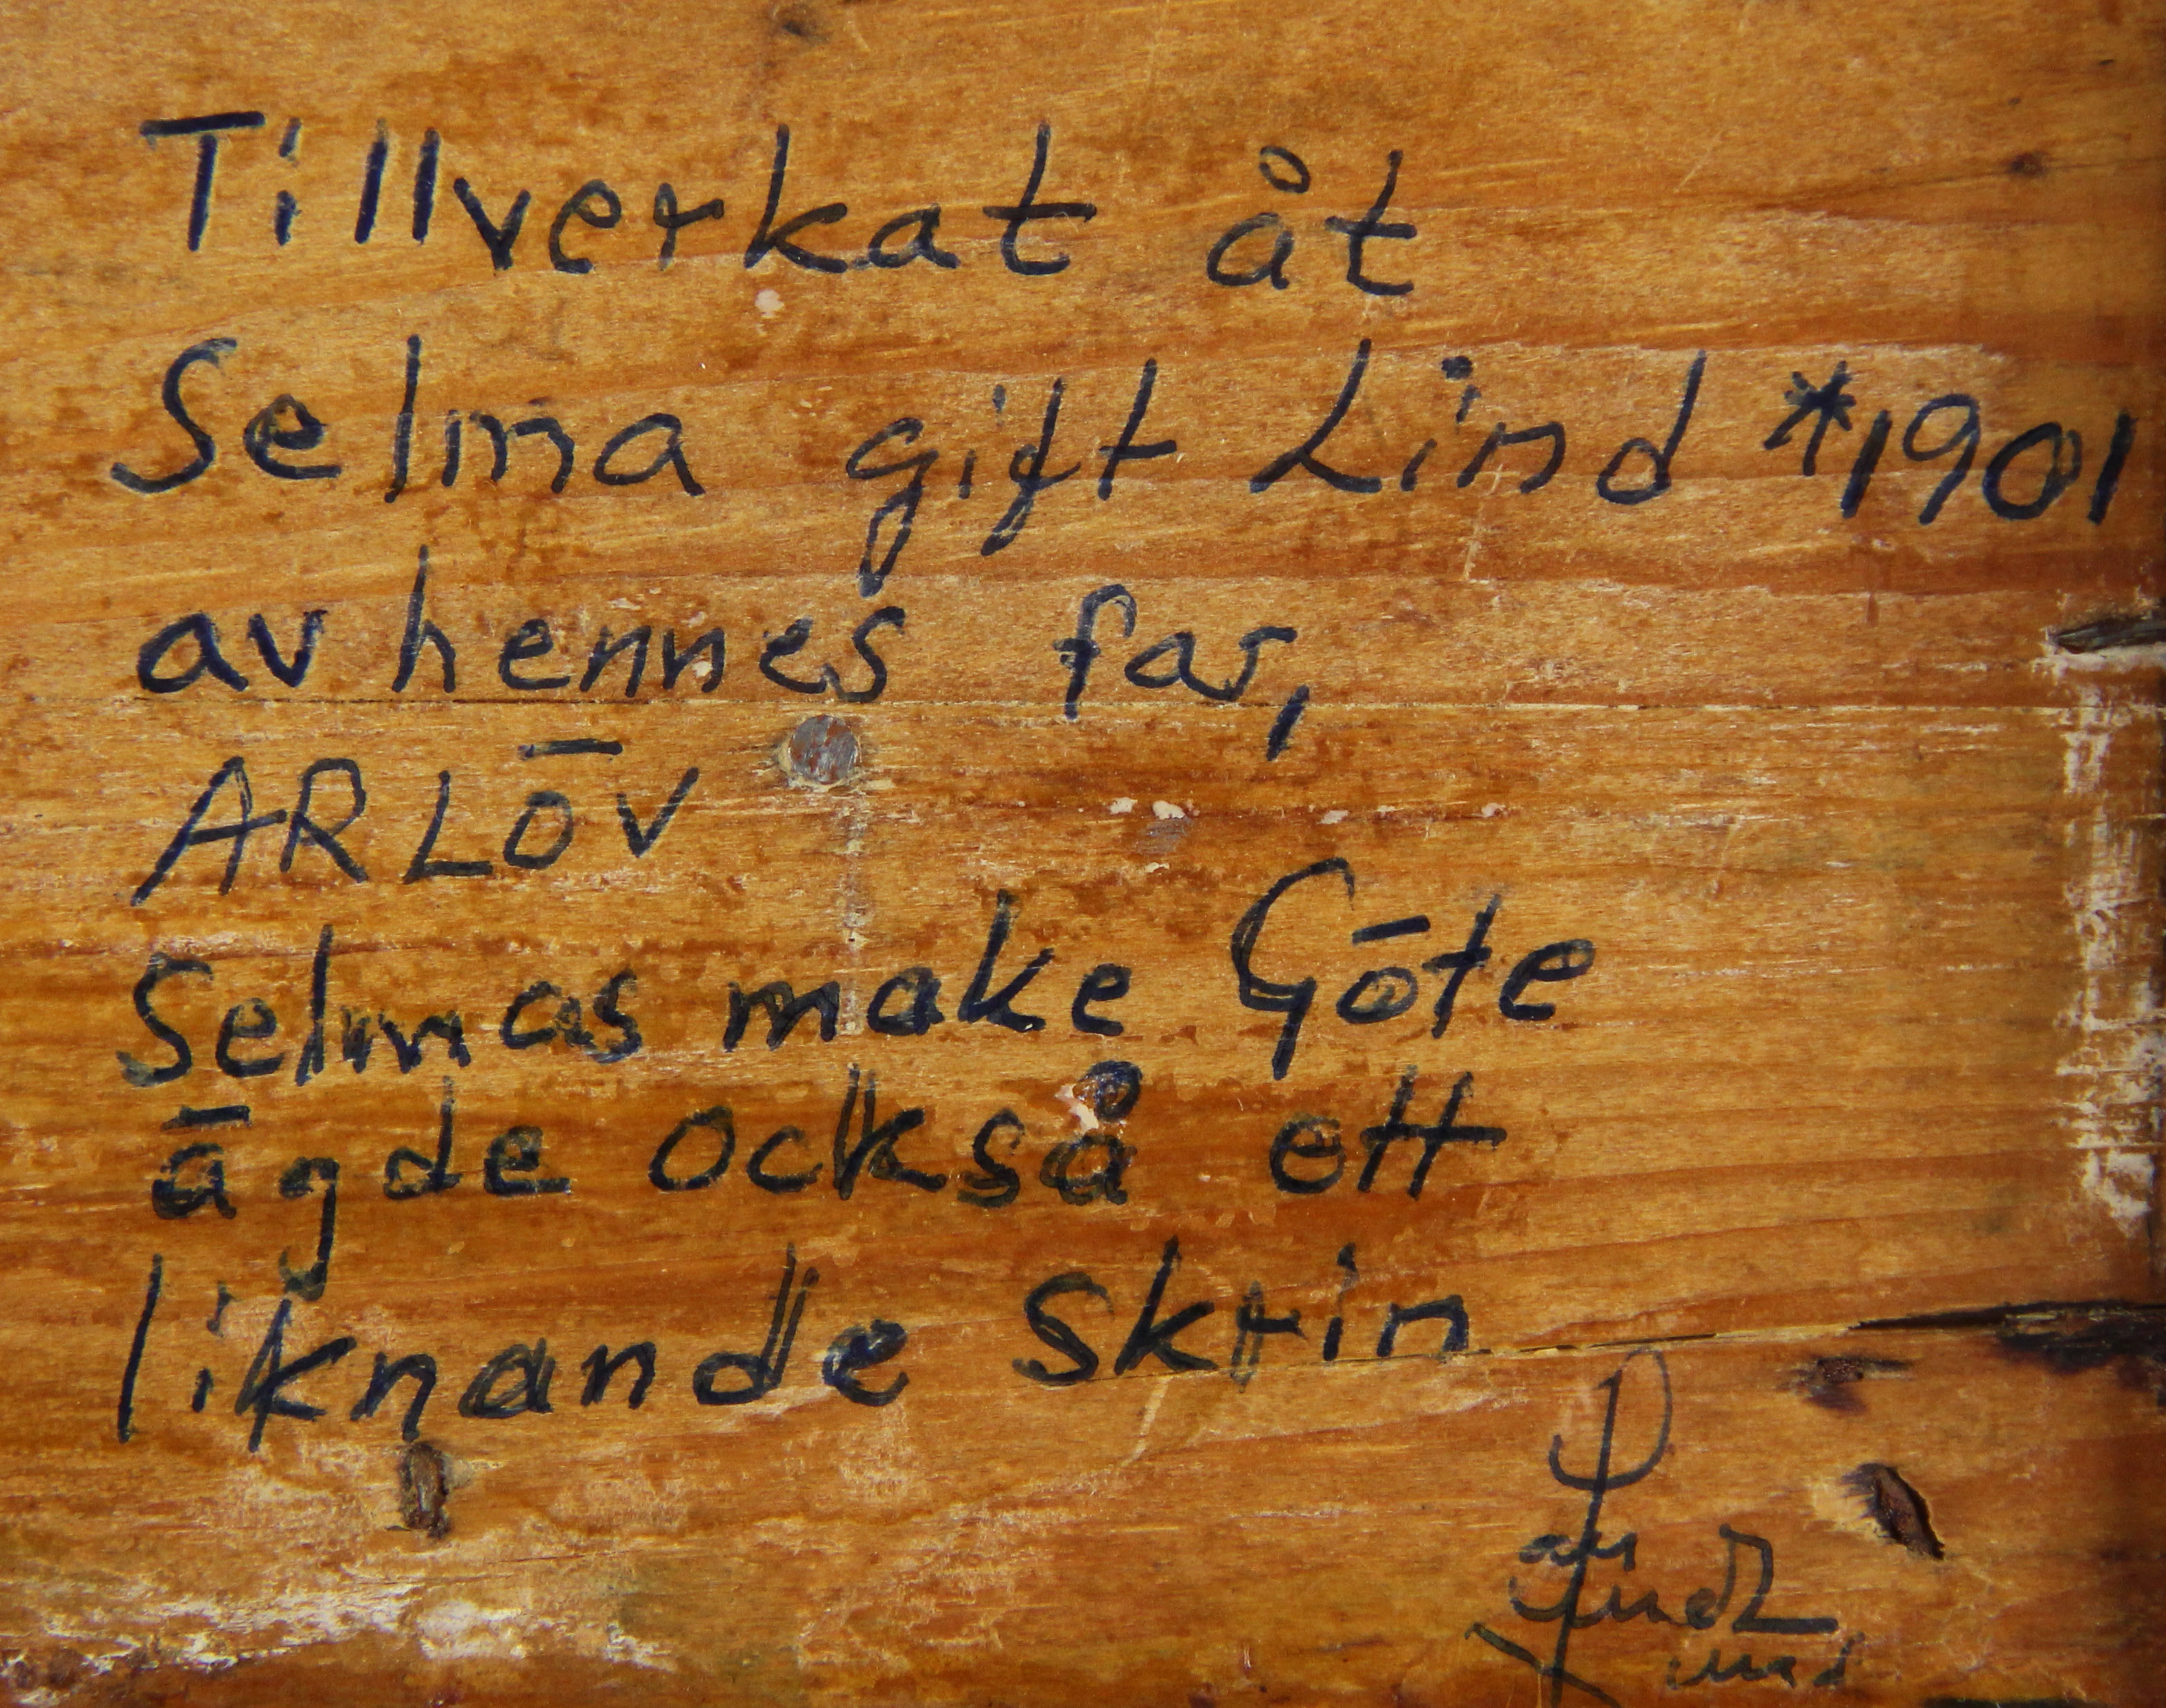 Tillverkat åt
Selma gift Lind *1901
av hennes far,
ARLÖV
Selmas make Göte
ägde också ett
liknande skrin